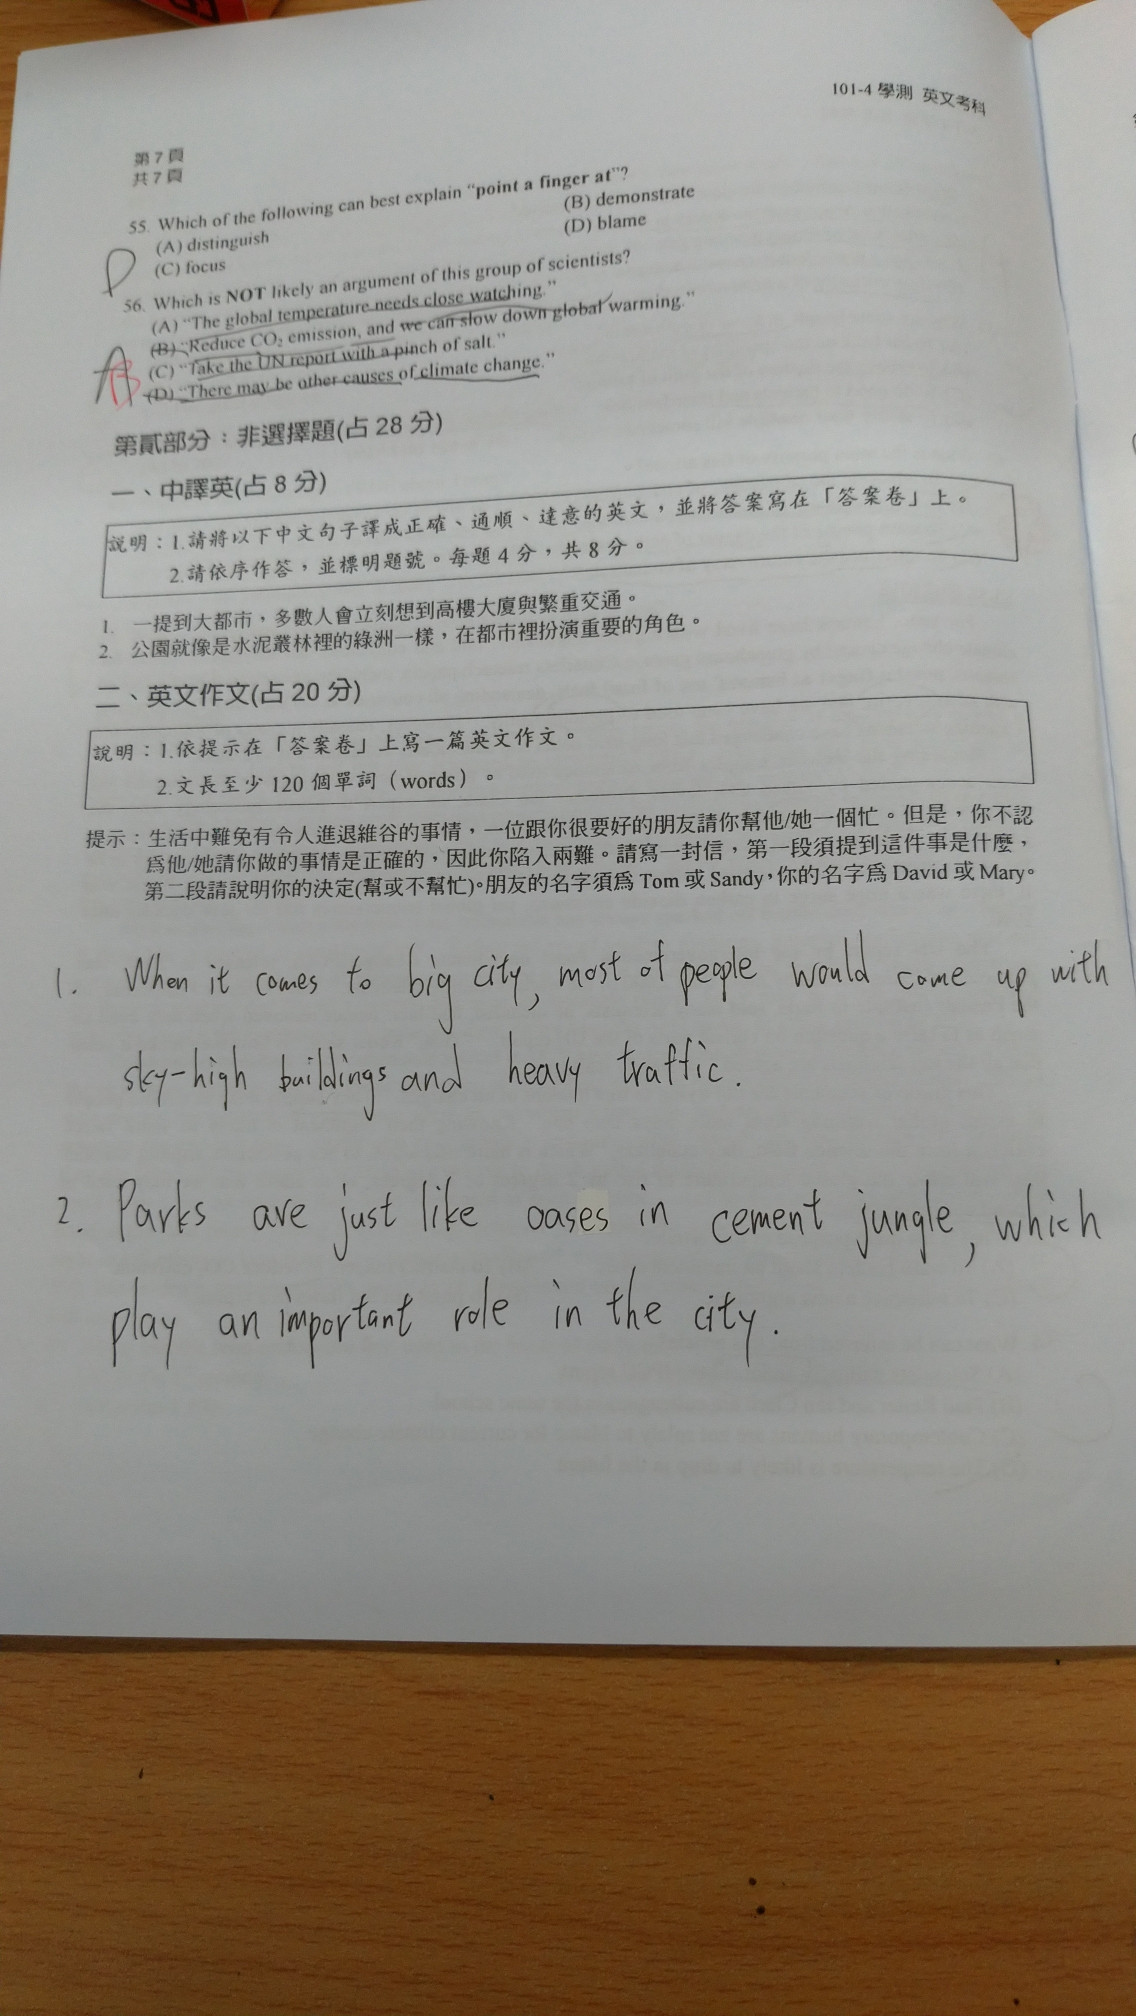 101-4 學測 英文考科
第 7 頁
共 7 頁
55. Which of the following can best explain “point a finger at”?
(A) distinguish (B) demonstrate
(C) focus (D) blame
D
56. Which is NOT likely an argument of this group of scientists?
(A) “The global temperature needs close watching.”
(B) “Reduce CO₂ emission, and we can slow down global warming.”
(C) “Take the UN report with a pinch of salt.”
(D) “There may be other causes of climate change.”
A B
第貳部分：非選擇題(占 28 分)
一、中譯英(占 8 分)
說明：1.請將以下中文句子譯成正確、通順、達意的英文，並將答案寫在「答案卷」上。
2.請依序作答，並標明題號。每題 4 分，共 8 分。
1. 一提到大都市，多數人會立刻想到高樓大廈與繁重交通。
2. 公園就像是水泥叢林裡的綠洲一樣，在都市裡扮演重要的角色。
二、英文作文(占 20 分)
說明：1.依提示在「答案卷」上寫一篇英文作文。
2.文長至少 120 個單詞（words）。
提示：生活中難免有令人進退維谷的事情，一位跟你很要好的朋友請你幫他/她一個忙。但是，你不認
為他/她請你做的事情是正確的，因此你陷入兩難。請寫一封信，第一段須提到這件事是什麼，
第二段請說明你的決定(幫或不幫忙)。朋友的名字須為 Tom 或 Sandy，你的名字為 David 或 Mary。
1. When it comes to big city, most of people would come up with
sky-high buildings and heavy traffic.
2. Parks are just like oases in cement jungle, which
play an important role in the city.